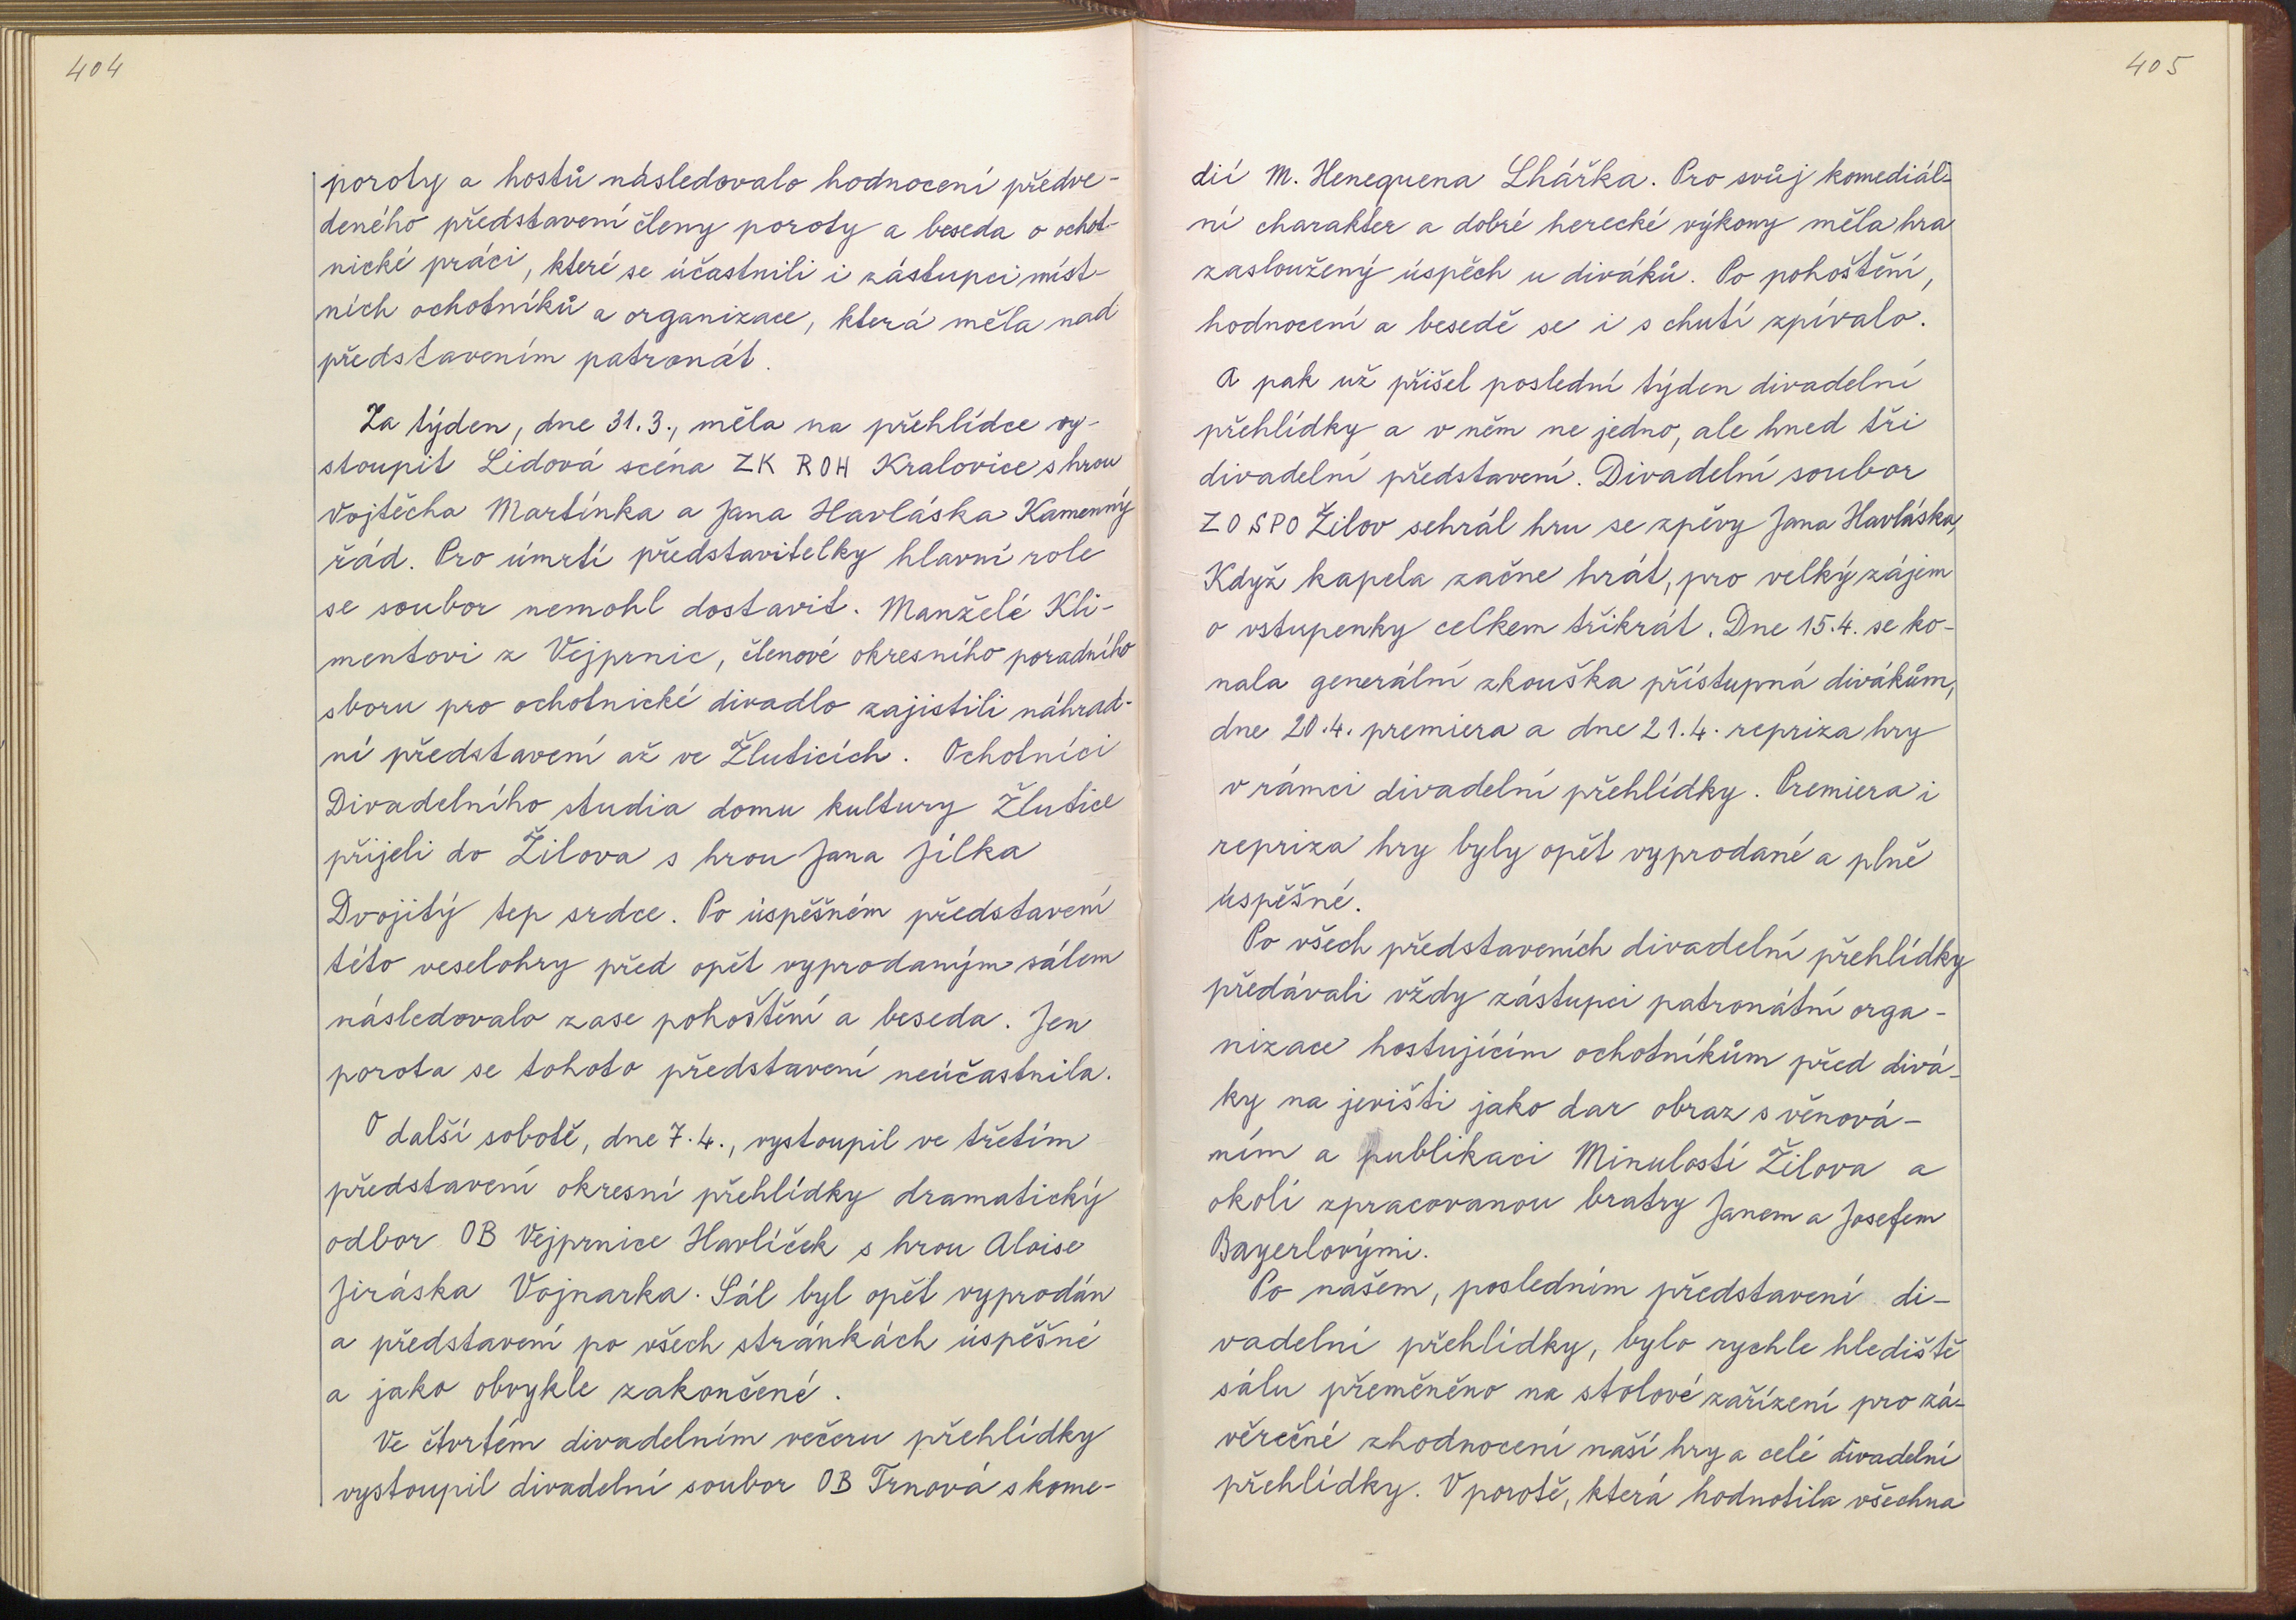 404
poroty a hostů následovalo hodnocení předve-
deného představení členy poroty a beseda o ochot-
nické práci, které se účastnili i zástupci míst-
ních ochotníků a organizace, která měla nad
představením patronát.
Za týden, dne 31.3., měla na přehlídce vy-
stoupit Lidová scéna ZK ROH Kralovice s hrou
Vojtěcha Martínka a Jana Havláska Kamenný
řád. Pro úmrtí představitelky hlavní role
se soubor nemohl dostavit. Manželé Kli-
mentovi z Vejprnic, členové okresního poradního
sboru pro ochotnické divadlo zajistili náhrad-
ní představení až ve Žluticích. Ochotníci
Divadelního studia domu kultury Žlutice
přijeli do Žilova s hrou Jana Jílka
Dvojitý tep srdce. Po úspěšném představení
této veselohry před opět vyprodaným sálem
následovalo zase pohoštění a beseda. Jen
porota se tohoto představení neúčastnila.
O další sobotě, dne 7.4., vystoupil ve třetím
představení okresní přehlídky dramatický
odbor OB Vejprnice Havlíček s hrou Aloise
Jiráska Vojnarka. Sál byl opět vyprodán
a představení po všech stránkách úspěšné
a jako obvykle zakončené.
Ve čtvrtém divadelním večeru přehlídky
vystoupil divadelní soubor OB Trnová s kome-
405
dií M. Henequena Lhářka. Pro svůj komediál-
ní charakter a dobré herecké výkony měla hra
zasloužený úspěch u diváků. Po pohoštění,
hodnocení a besedě se i s chutí zpívalo.
A pak už přišel poslední týden divadelní
přehlídky a v něm ne jedno, ale hned tři
divadelní představení. Divadelní soubor
ZO SPO Žilov sehrál hru se zpěvy Jana Havláska,
Když kapela začne hrát, pro velký zájem
o vstupenky celkem třikrát. Dne 15.4. se ko-
nala generální zkouška přístupná divákům,
dne 20.4. premiera a dne 21.4. repriza hry
v rámci divadelní přehlídky. Premiera i
repriza hry byly opět vyprodané a plně
úspěšné.
Po všech představeních divadelní přehlídky
předávali vždy zástupci patronátní orga-
nizace hostujícím ochotníkům před divá-
ky na jevišti jako dar obraz s věnová-
ním a publikaci Minulostí Žilova a
okolí zpracovanou bratry Janem a Josefem
Bayerlovými.
Po našem, posledním představení di-
vadelní přehlídky, bylo rychle hlediště
sálu přeměněno na stolové zařízení pro zá-
věrečné zhodnocení naší hry a celé divadelní
přehlídky. V porotě, která hodnotila všechna